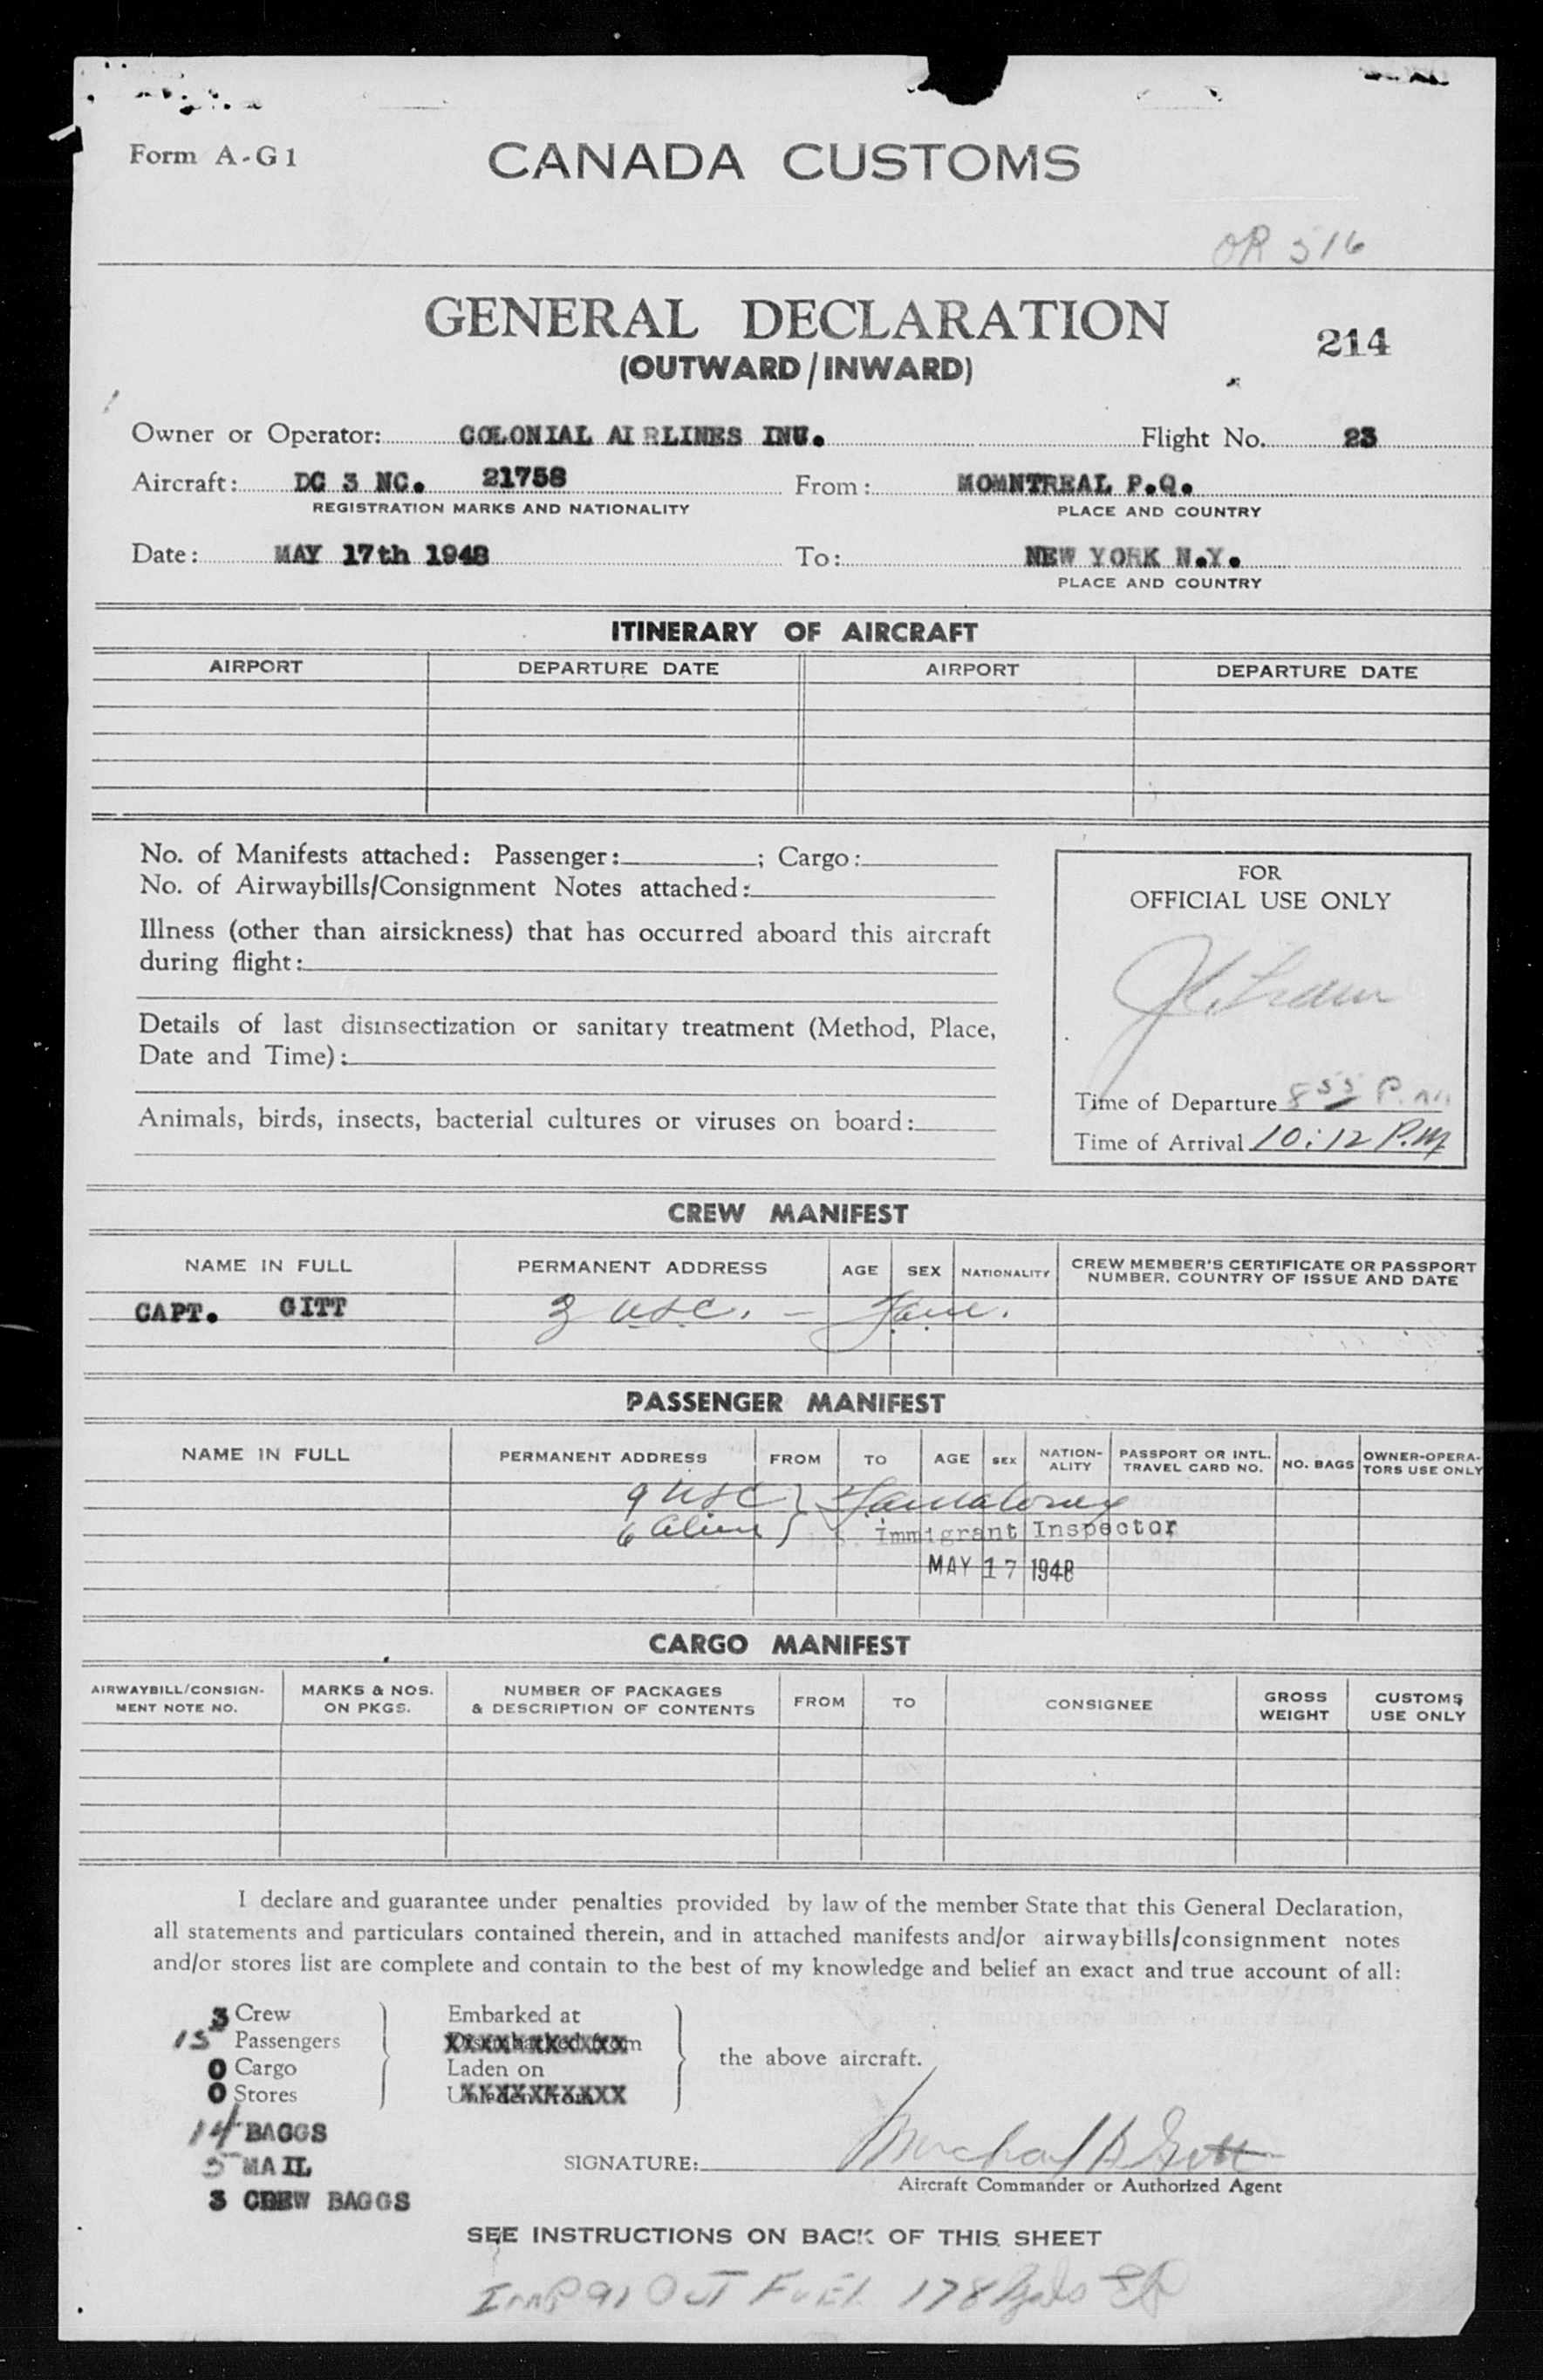 Form A-G1
CANADA CUSTOMS
OR 516
GENERAL DECLARATION
(OUTWARD/INWARD)
214
Owner or Operator: COLONIAL AIRLINES INC. Flight No. 23
Aircraft: DC 3 NC. 21758 From: MOMNTREAL P.Q.
REGISTRATION MARKS AND NATIONALITY PLACE AND COUNTRY
Date: MAY 17th 1948 To: NEW YORK N.Y.
PLACE AND COUNTRY
ITINERARY OF AIRCRAFT
AIRPORT DEPARTURE DATE AIRPORT DEPARTURE DATE
No. of Manifests attached: Passenger: ; Cargo:
No. of Airwaybills/Consignment Notes attached:
Illness (other than airsickness) that has occurred aboard this aircraft
during flight:
Details of last disinsectization or sanitary treatment (Method, Place,
Date and Time):
Animals, birds, insects, bacterial cultures or viruses on board:
FOR
OFFICIAL USE ONLY
Time of Departure 8 55 P.m.
Time of Arrival 10:12 P.M
CREW MANIFEST
NAME IN FULL PERMANENT ADDRESS AGE SEX NATIONALITY CREW MEMBER'S CERTIFICATE OR PASSPORT
NUMBER, COUNTRY OF ISSUE AND DATE
CAPT. GITT 3 USC. -
PASSENGER MANIFEST
NAME IN FULL PERMANENT ADDRESS FROM TO AGE SEX NATION-
ALITY PASSPORT OR INTL.
TRAVEL CARD NO. NO. BAGS OWNER-OPERA-
TORS USE ONLY
9 USC
6 Alien
immigrant Inspector
MAY 17 1948
CARGO MANIFEST
AIRWAYBILL/CONSIGN-
MENT NOTE NO. MARKS & NOS.
ON PKGS. NUMBER OF PACKAGES
& DESCRIPTION OF CONTENTS FROM TO CONSIGNEE GROSS
WEIGHT CUSTOMS
USE ONLY
I declare and guarantee under penalties provided by law of the member State that this General Declaration,
all statements and particulars contained therein, and in attached manifests and/or airwaybills/consignment notes
and/or stores list are complete and contain to the best of my knowledge and belief an exact and true account of all:
3 Crew Embarked at
15 Passengers
0 Cargo Laden on
0 Stores
the above aircraft.
14 BAGGS
5 MAIL
3 CREW BAGGS
SIGNATURE: Michael B Gitt
Aircraft Commander or Authorized Agent
SEE INSTRUCTIONS ON BACK OF THIS SHEET
OUT FUEL 178 Gals